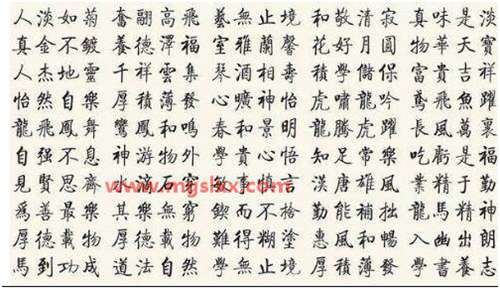 人淡如菊 奮翮高飛 藝無止境 和敬清寂 真味是淡
真金不鍍 養德澤福 室雅蘭馨 花好月圓 物華天寶
人杰地靈 千祥雲集 琴酒相壽 積學儲保 富貴吉祥
怡然自樂 厚積薄發 心曠神怡 虎嘯龍吟 鳶飛魚躍
龍飛鳳舞 鸞鳳和鳴 春和景明 龍騰虎躍 長風萬裏
自强不息 神游物外 學貴心悟 知足常樂 吃虧是福
見賢思齊 水滴石穿 事慎言 漢唐雄風 業精于勤
爲善最樂 其樂無窮 鍥而不捨 勤能補拙 龍馬精神
厚德載物 厚德載物 難得糊塗 惠風和暢 入幽出朗
馬到功成 道法自然 學無止境 厚積薄發 學書養志